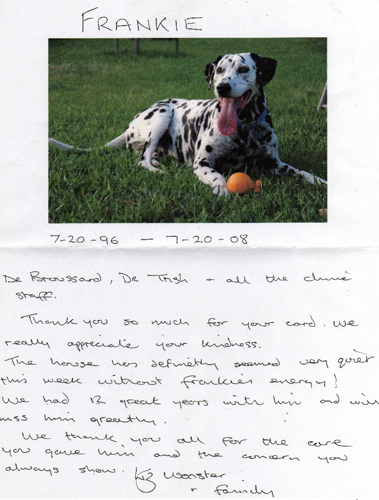 FRANKIE
7-20-96 - 7-20-08
Dr Broussard, Dr Trish + all the clinic
staff.
Thank you so much for your card. We
really appreciate your kindness.
The house has definitly seemed very quiet
this week without Frankie's energy!
We had 12 great years with him and will
miss him greatly.
We thank you all for the care
you gave him and the concern you
always show.
+ family